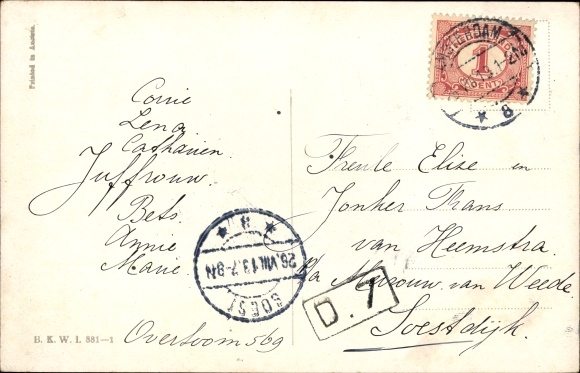 Printed in Austria.
Corrie
Lena
Catharien
Juffrouw
Bets
Annie
Marie
Overtoom 569
B. K. W. I. 881—1
AMSTERDAM
8
1
CENT
SOEST
26.VIII.13.7-8N
8
Freule Elise en
Jonker Frans
van Heemstra
P/a Mevrouw van Weede
D. 7
Soestdijk.